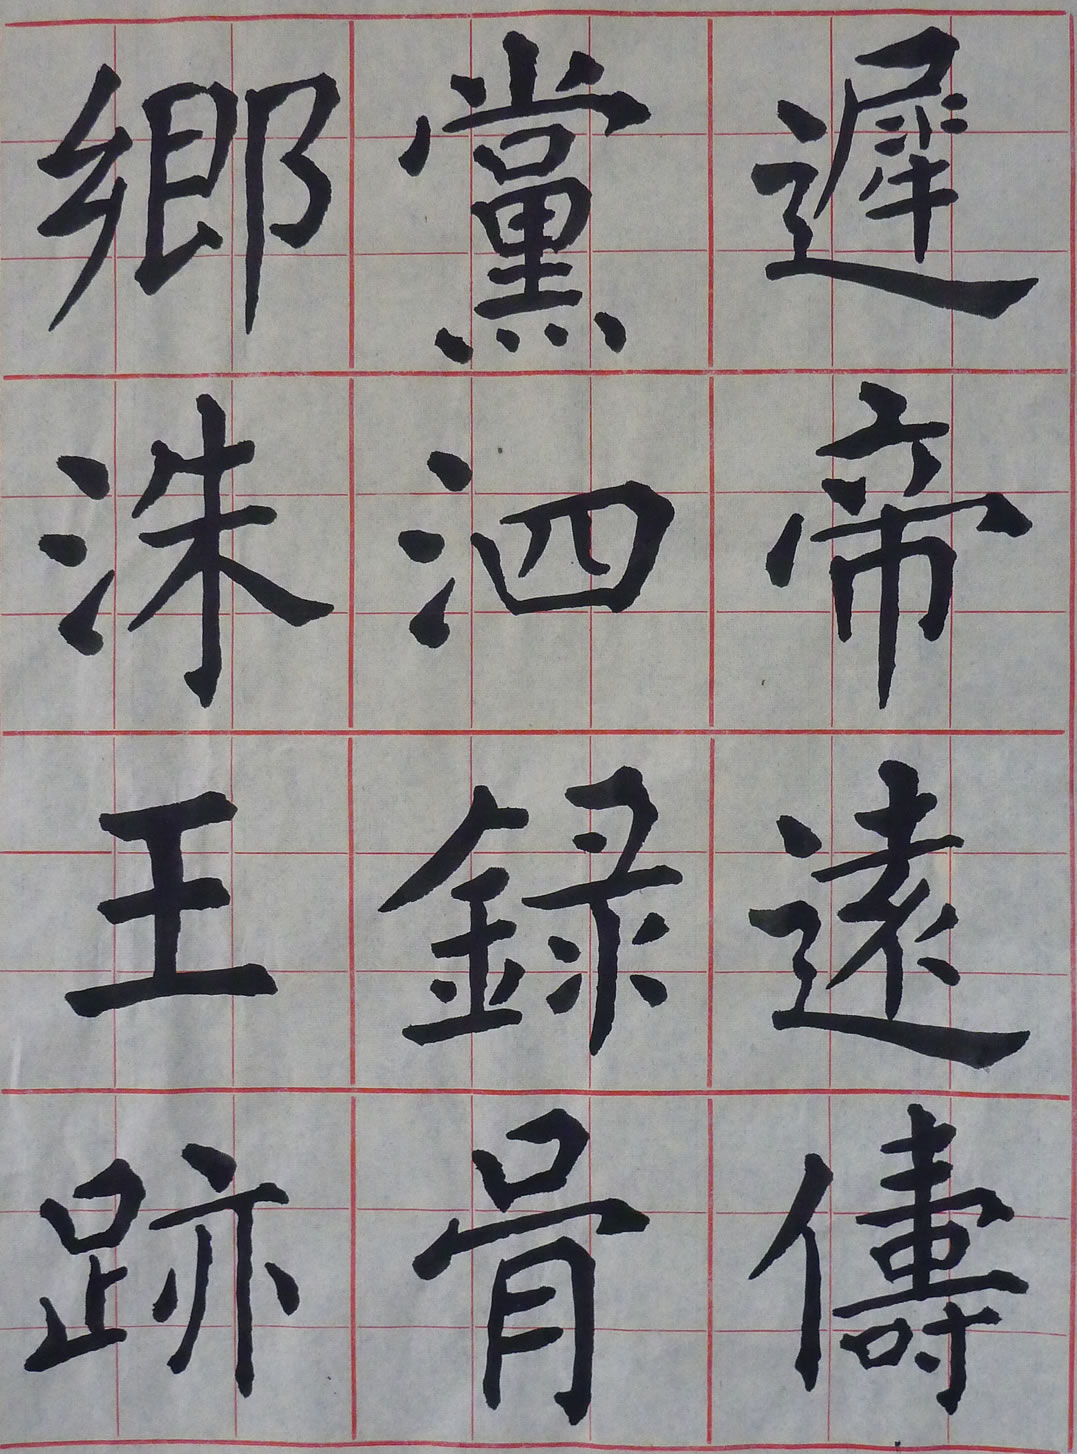 郷黨遲
洙泗帝
王録遠
跡骨儔